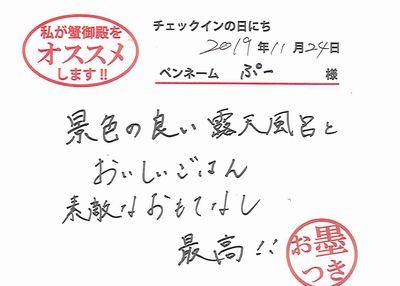 私が蟹御殿を
オススメ
します!!
チェックインの日にち
2019年11月24日
ペンネーム ぷー 様
景色の良い露天風呂と
おいしいごはん
素敵なおもてなし
最高!!
お墨
つき